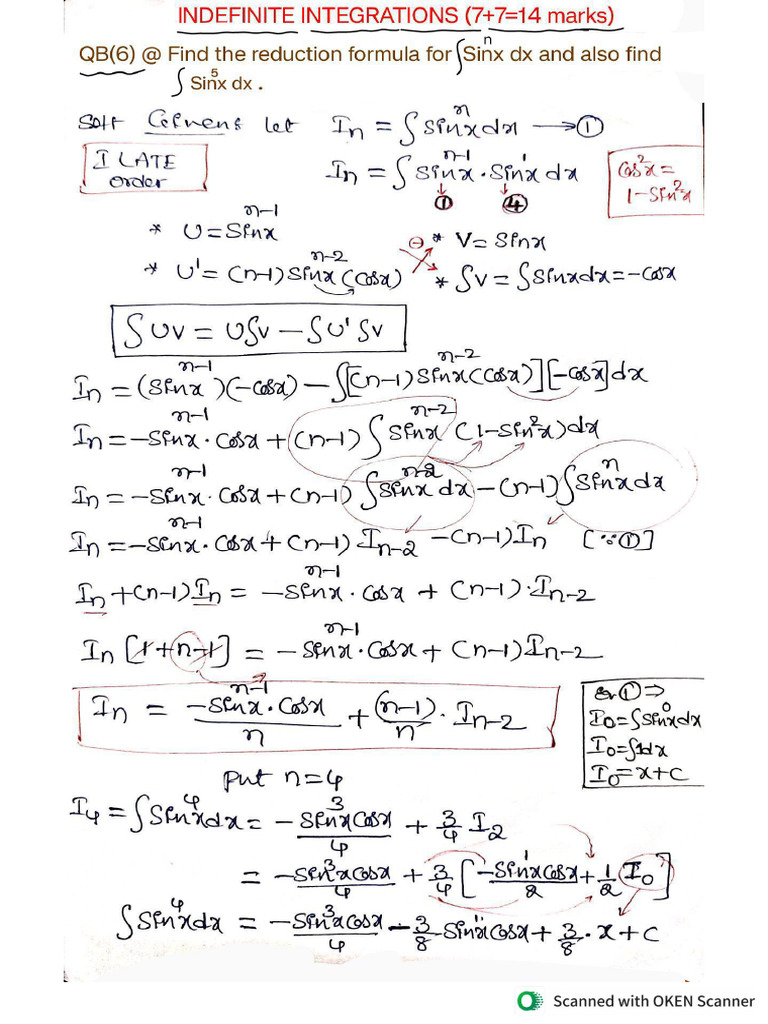 INDEFINITE INTEGRATIONS (7+7=14 marks)
QB(6) @ Find the reduction formula for ∫Sinⁿx dx and also find
∫ Sin⁵x dx .
Soln Givens let Iₙ = ∫ sinⁿx dx → ①
I LATE order
Iₙ = ∫ sinⁿ⁻¹x · sin¹x dx
① ④
Cos²x = 1 - Sin²x
* U = Sinⁿ⁻¹x ⊖ * V = Sinx
* U' = (n-1) Sinⁿ⁻²x (Cosx) * ∫V = ∫Sinxdx = -Cosx
∫UV = U∫V - ∫U'∫V
Iₙ = (Sinⁿ⁻¹x)(-Cosx) - ∫[(n-1) Sinⁿ⁻²x (Cosx)][-Cosx]dx
Iₙ = -Sinⁿ⁻¹x · Cosx + (n-1) ∫ Sinⁿ⁻²x (1-Sin²x)dx
Iₙ = -Sinⁿ⁻¹x · Cosx + (n-1) ∫Sinⁿ⁻²x dx - (n-1)∫Sinⁿx dx
Iₙ = -Sinⁿ⁻¹x · Cosx + (n-1) Iₙ₋₂ - (n-1)Iₙ [∵①]
Iₙ + (n-1)Iₙ = -Sinⁿ⁻¹x · Cosx + (n-1) · Iₙ₋₂
Iₙ [1+n-1] = -Sinⁿ⁻¹x · Cosx + (n-1)Iₙ₋₂
Iₙ = -Sinⁿ⁻¹x · Cosx / n + (n-1)/n · Iₙ₋₂
① ⇒
I₀ = ∫Sin⁰x dx
I₀ = ∫1dx
I₀ = x + C
Put n=4
I₄ = ∫Sin⁴x dx = -Sin³x Cosx / 4 + 3/4 I₂
= -Sin³x Cosx / 4 + 3/4 [-Sin¹x Cosx / 2 + 1/2 I₀]
∫ Sin⁴x dx = -Sin³x Cosx / 4 - 3/8 Sin¹x Cosx + 3/8 · x + C
Scanned with OKEN Scanner